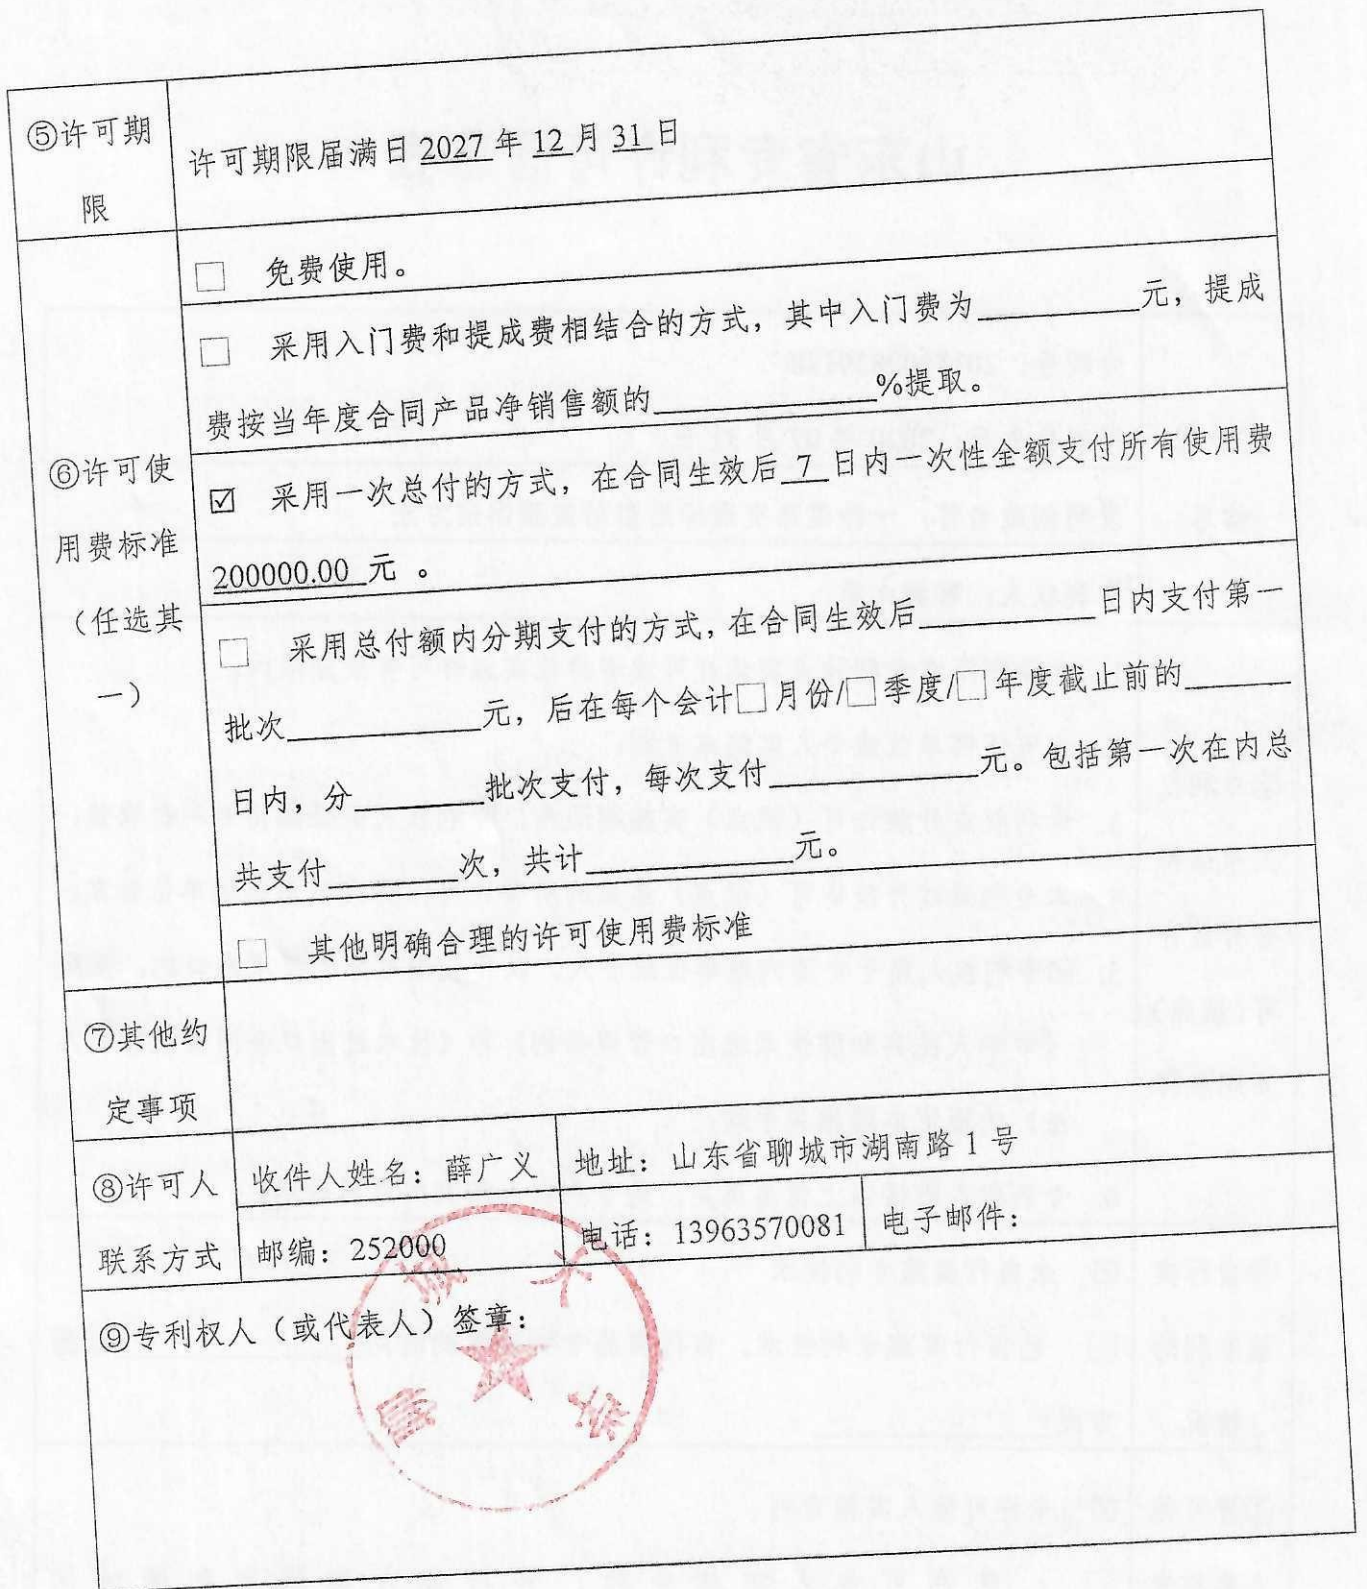 ⑤许可期
限
许可期限届满日 2027 年 12 月 31 日
⑥许可使
用费标准
（任选其
一）
□ 免费使用。
□ 采用入门费和提成费相结合的方式，其中入门费为________元，提成
费按当年度合同产品净销售额的____________%提取。
☑ 采用一次总付的方式，在合同生效后 7 日内一次性全额支付所有使用费
200000.00 元 。
□ 采用总付额内分期支付的方式，在合同生效后__________日内支付第一
批次__________元，后在每个会计□月份/□季度/□年度截止前的______
日内，分_______批次支付，每次支付___________元。包括第一次在内总
共支付_______次，共计___________元。
□ 其他明确合理的许可使用费标准
⑦其他约
定事项
⑧许可人
联系方式
收件人姓名：薛广义
地址：山东省聊城市湖南路 1 号
邮编：252000
电话：13963570081
电子邮件：
⑨专利权人（或代表人）签章：
聊城大学